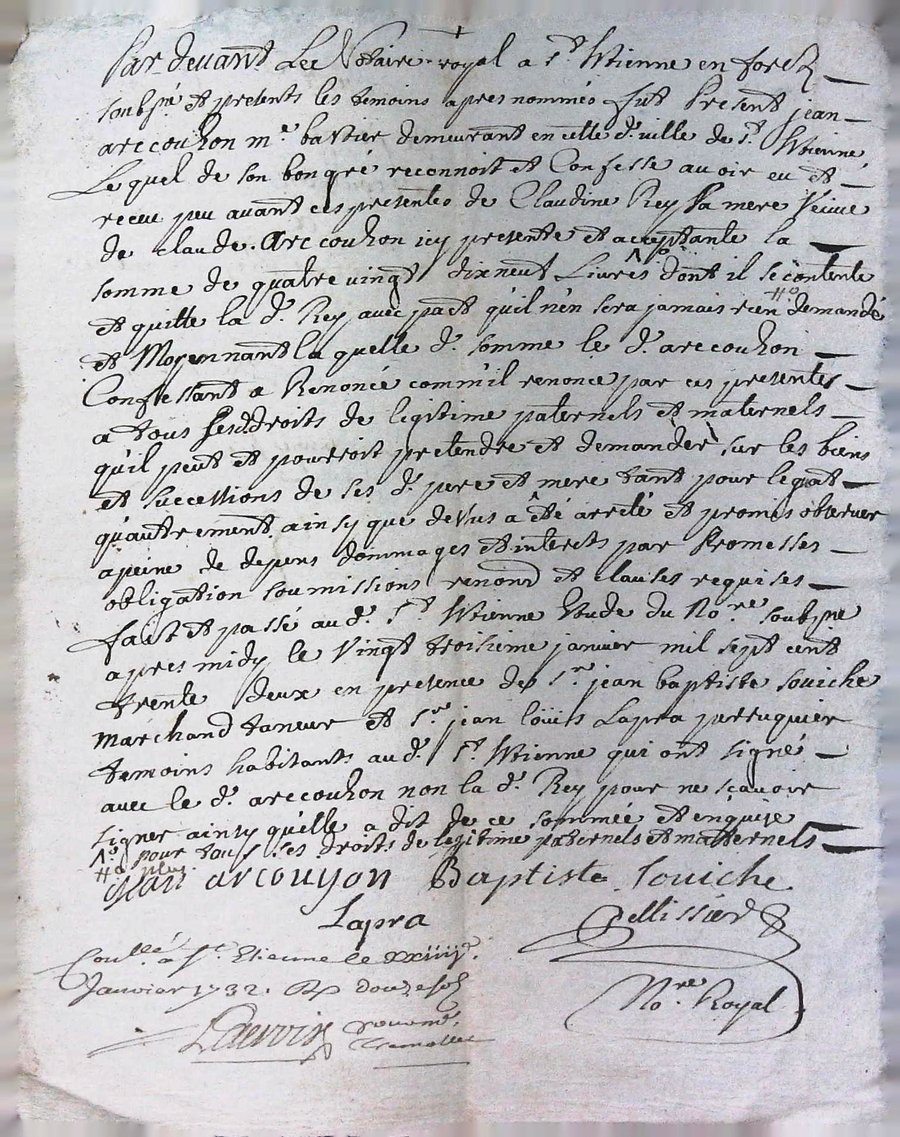 Par devant Le Notaire royal a St. Etienne en forez
soubsné et presents les temoins apres nommés fut Present jean
arecouhon me. bastier demeurant en cette de. ville de St. Etienne
Lequel de son bongré reconnoit et Confesse avoir eu et
receu peu avant ces presentes de Claudine Rey sa mere veuve
de claude arecouhon icy presente et acceptante la
somme de quatre vingt dix neuf Livres dont il se contente
et quitte la de. Rey avec pact qu'il n'en sera jamais rien demandé
et Moyennant la quelle de. somme le d. arecouhon
Confessant a Renoncé comm'il renonce par ces presentes
a tous sesd. droits de legitime paternels et maternels
qu'il peut et pourroit pretendre et demander sur les biens
et successions de ses d. pere et mere tant pour legat
qu'autrement ainsy que dessus a été arrété et promis observer
apeine de depens dommages et interets par Promesses
obligation soumissions renond et clauses requises
fait et passé aud. St. Etienne Etude du Nore. soubsne
apres midy le vingt troisieme janvier mil sept cent
trente deux en presence de Sr. jean baptiste souiche
marchand taneur et Sr. jean loüis Lapra perruquier
temoins habitants aud. St. Etienne qui ont signé
avec le d. arecouhon non la de. Rey pour ne sçavoir
signer ainsy qu'elle a dit de ce sommée et enquise
pour tous ses droits de legitime paternels et maternels
plus
jean arcouyon Baptiste Souiche
Lapra
Pellissier
Conllé. a St. Etienne le xxiiij
Janvier 1732. Rp douze sols
Nore. Royal